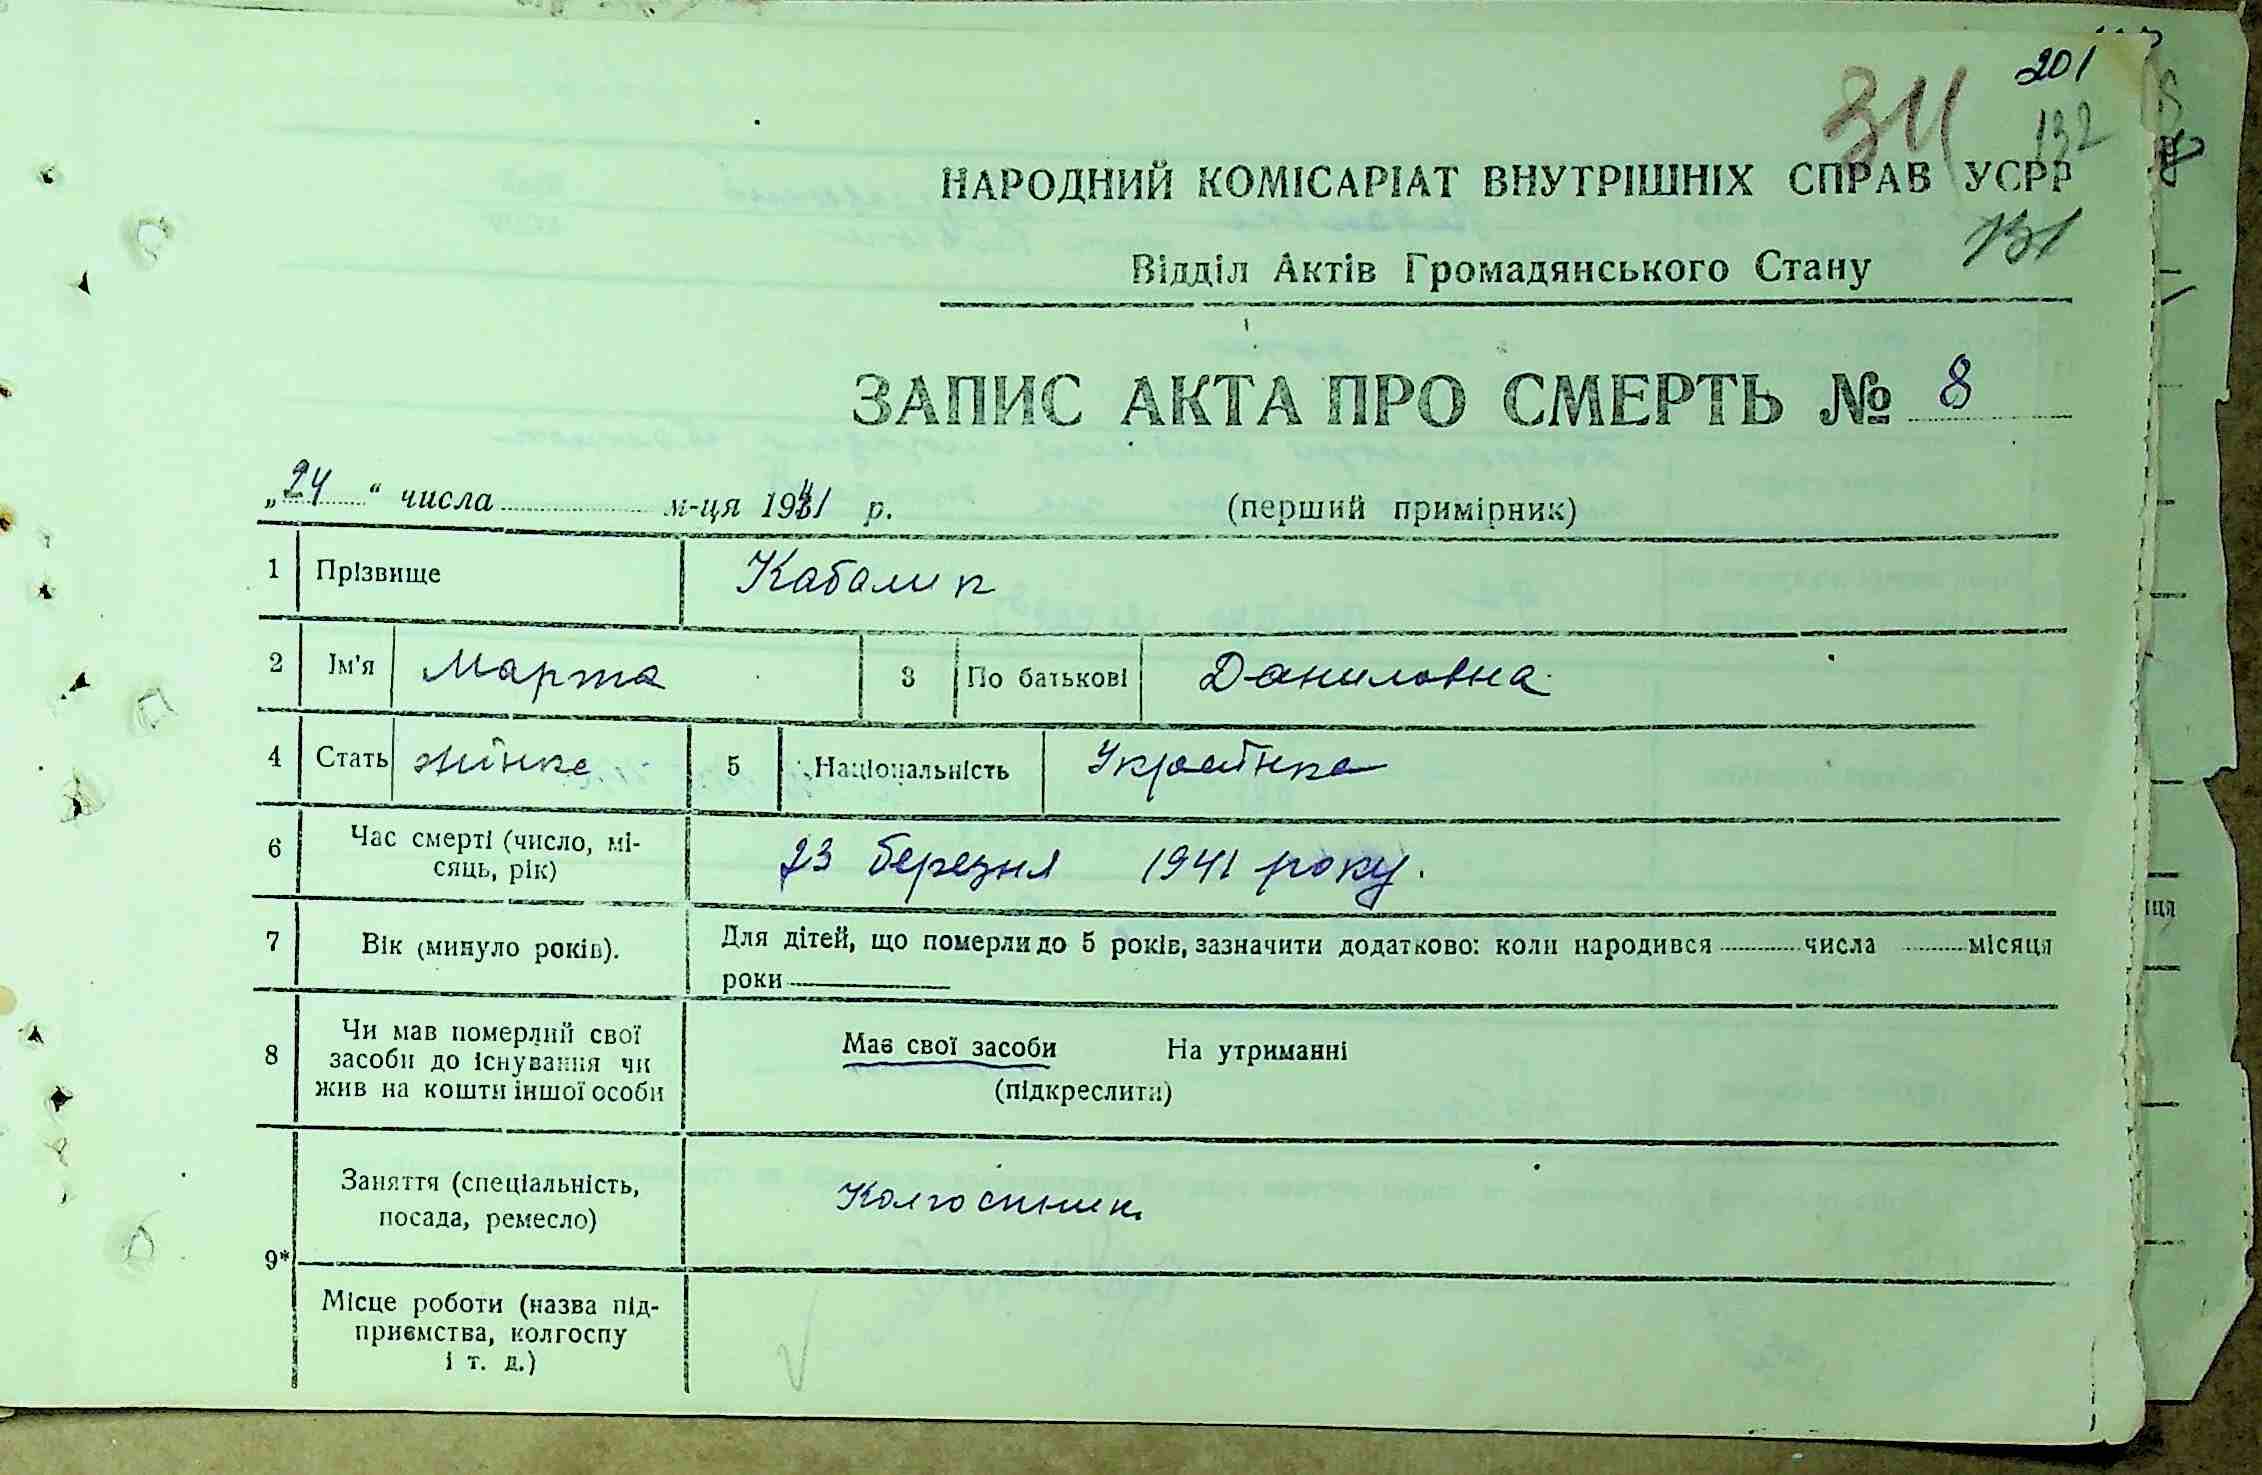 201
132
НАРОДНИЙ КОМІСАРІАТ ВНУТРІШНІХ СПРАВ УСРР
131
Відділ Актів Громадянського Стану
ЗАПИС АКТА ПРО СМЕРТЬ № 8
„24“ числа м-ця 1941 р. (перший примірник)
1 Прізвище Кабалик
2 Ім'я Марта 3 По батькові Даниловна
4 Стать жінка 5 Національність Українка
6 Час смерті (число, мі-
сяць, рік) 23 березня 1941 року.
7 Вік (минуло років). Для дітей, що померли до 5 років, зазначити додатково: коли народився числа місяця
роки
8 Чи мав померлий свої
засоби до існування чи
жив на кошти іншої особи
Має свої засоби На утриманні
(підкреслити)
9* Заняття (спеціальність,
посада, ремесло) Колгоспник
Місце роботи (назва під-
приємства, колгоспу
і т. д.)